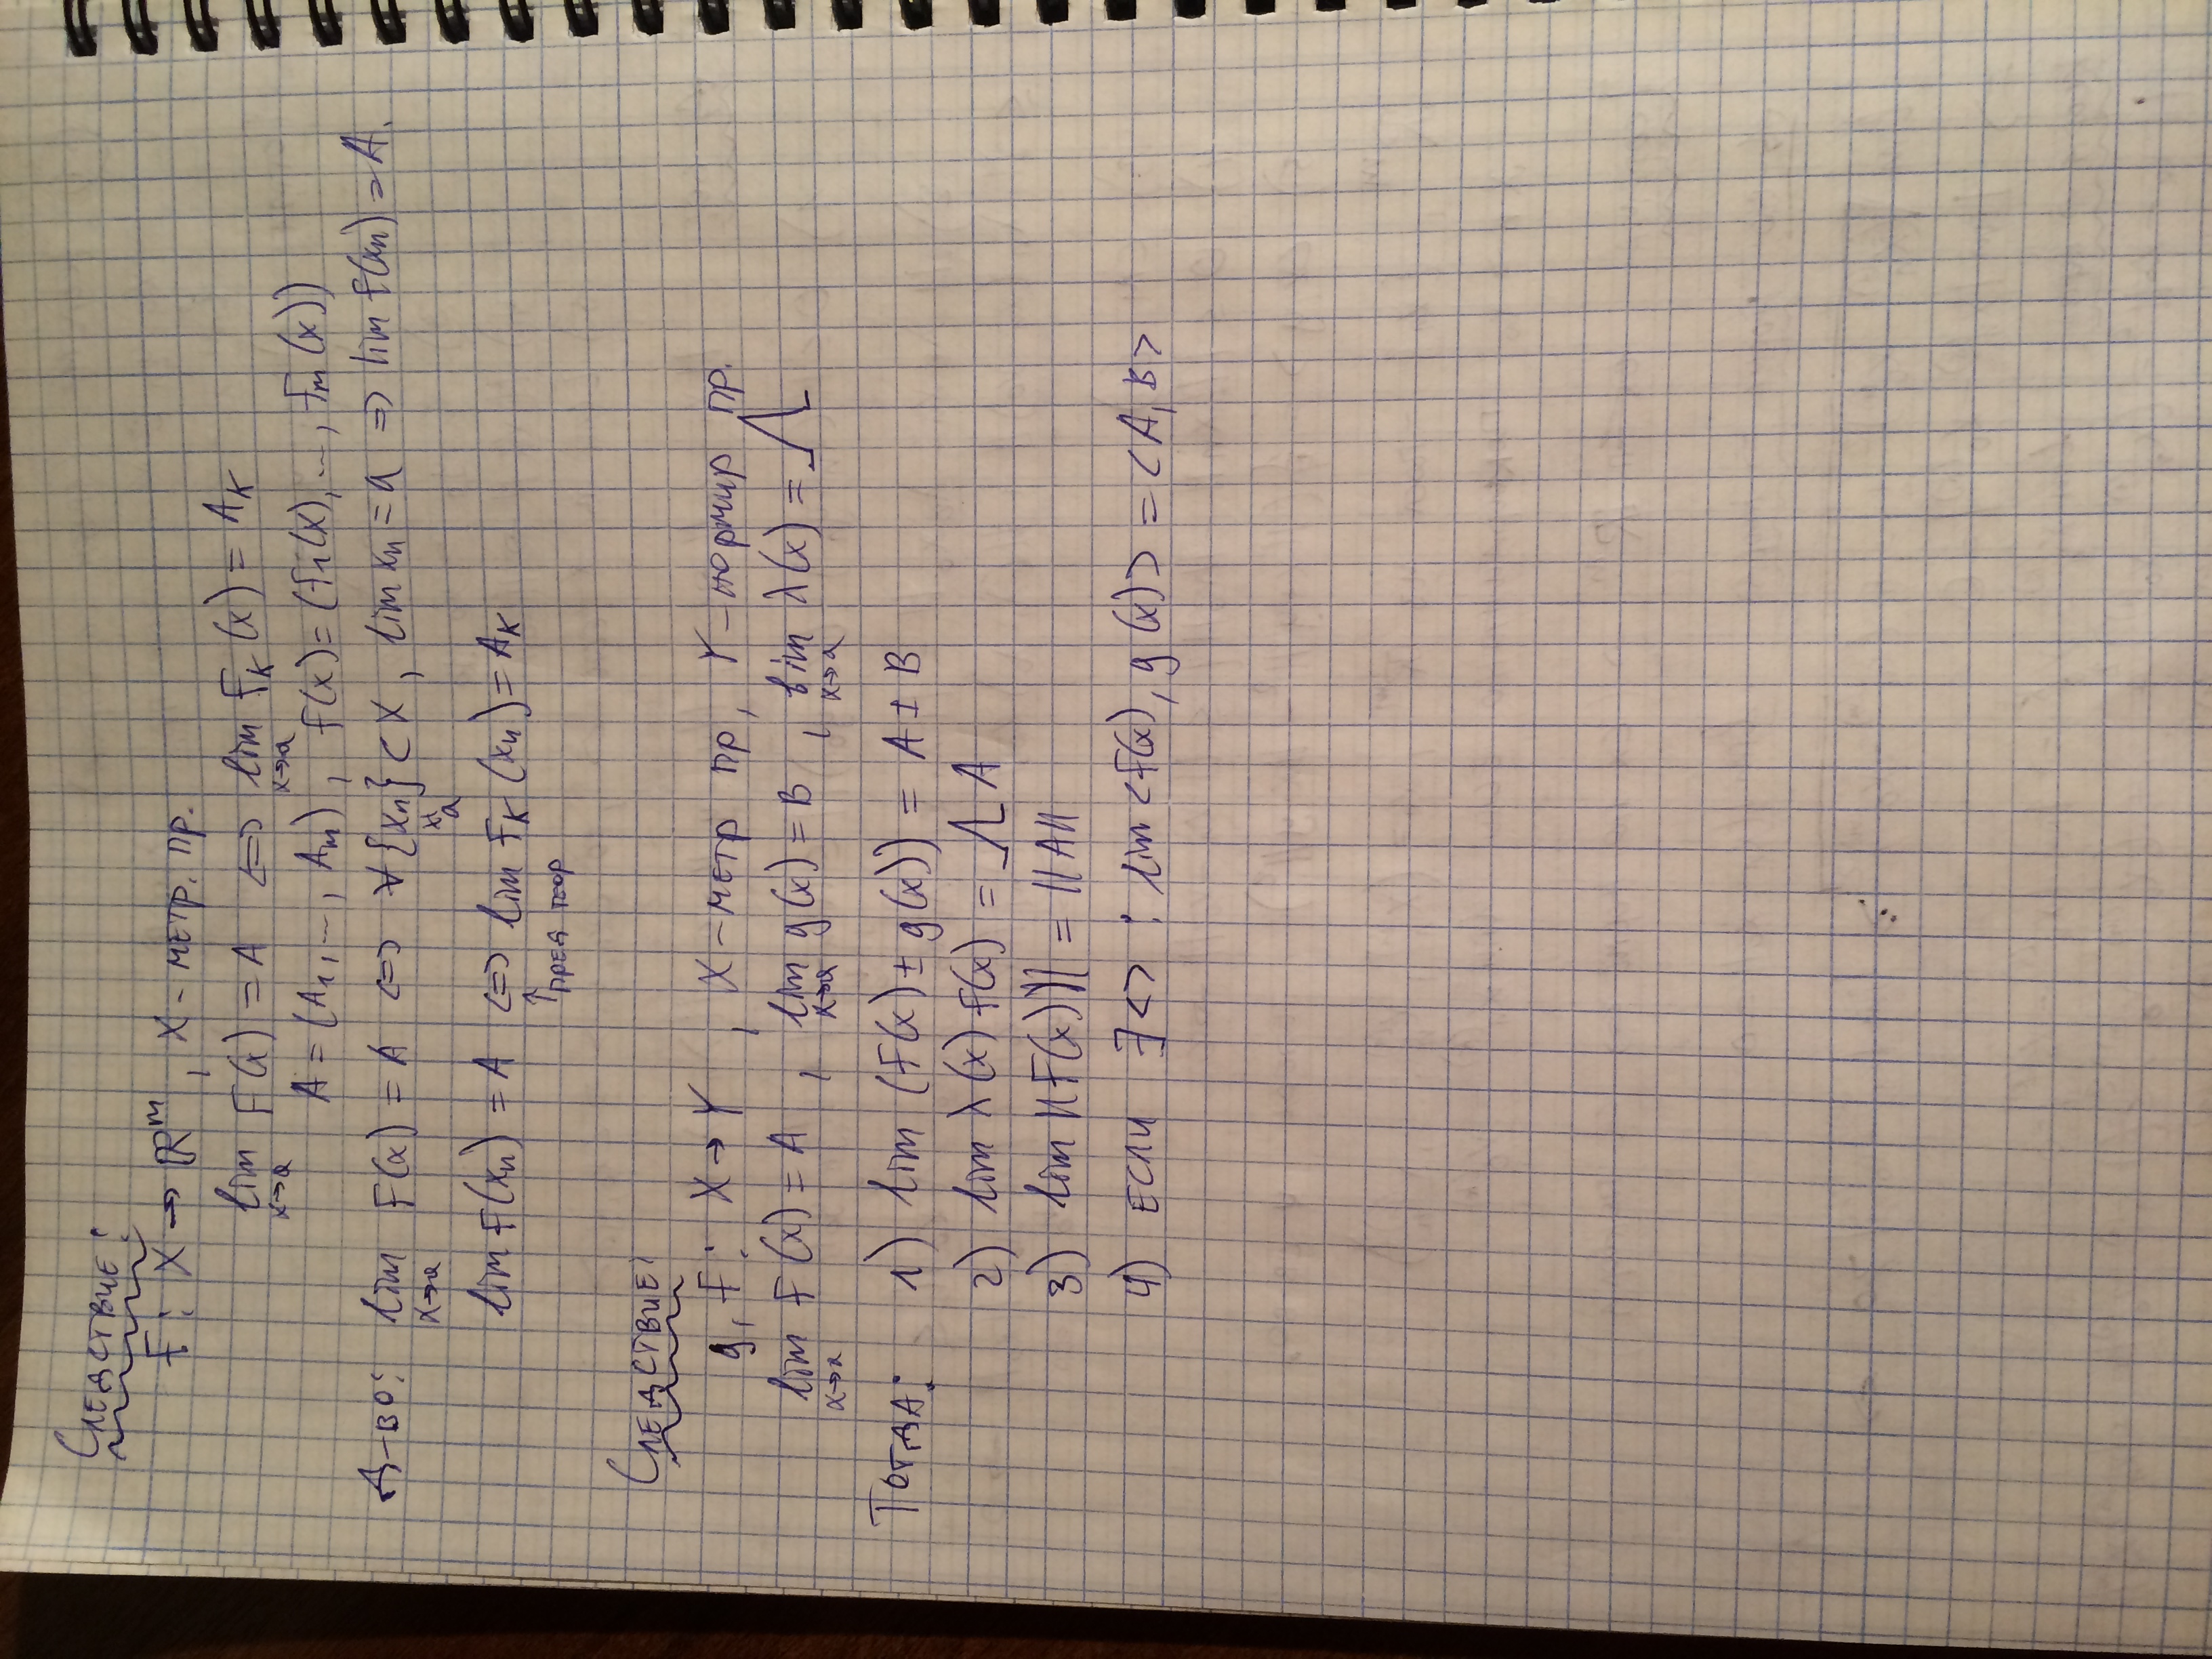 Следствие:
F: X → ℝᵐ, X - метр. пр.
lim F(x) = A ⇔ lim Fₖ(x) = Aₖ
x→a x→a
A = (A₁, ..., Aₘ), f(x) = (f₁(x), ..., fₘ(x))
Д-во: lim F(x) = A ⇔ ∀{xₙ} ⊂ X, lim xₙ = a ⇒ lim f(xₙ) = A.
x→a ≠ a
lim F(xₙ) = A ⇔ lim Fₖ(xₙ) = Aₖ
↑ пред теор
Следствие:
g, F: X → Y, X - метр пр, Y - нормир пр.
lim F(x) = A, lim g(x) = B, lim λ(x) = Λ
x→a x→a x→a
Тогда: 1) lim (F(x) ± g(x)) = A ± B
2) lim λ(x) f(x) = Λ A
3) lim ||F(x)|| = ||A||
4) если ∃ <> : lim <F(x), g(x)> = <A, B>